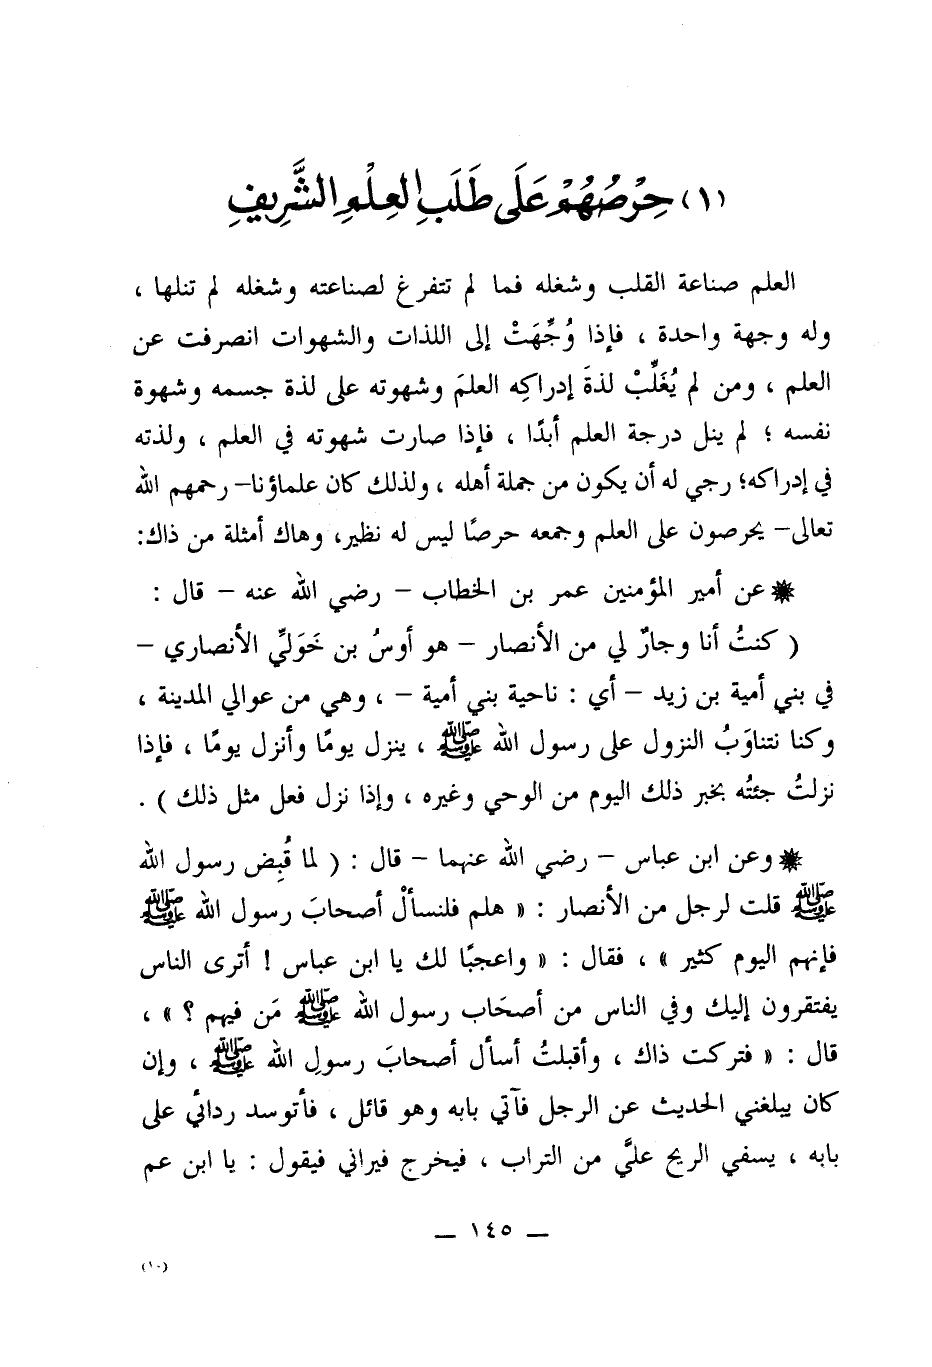 (١) حِرْصُهُمْ عَلَى طَلَبِ العِلْمِ الشَّرِيفِ
العلم صناعة القلب وشغله فما لم تتفرغ لصناعته وشغله لم تنلها ،
وله وجهة واحدة ، فإذا وُجِّهَتْ إلى اللذات والشهوات انصرفت عن
العلم ، ومن لم يُغَلِّبْ لذةَ إدراكِه العلمَ وشهوته على لذة جسمه وشهوة
نفسه ؛ لم ينل درجة العلم أبدًا ، فإذا صارت شهوته في العلم ، ولذته
في إدراكه؛ رجي له أن يكون من جملة أهله ، ولذلك كان علماؤنا– رحمهم الله
تعالى– يحرصون على العلم وجمعه حرصًا ليس له نظير، وهاك أمثلة من ذاك:
❋ عن أمير المؤمنين عمر بن الخطاب – رضي الله عنه – قال :
( كنتُ أنا وجارٌ لي من الأنصار – هو أوسُ بن خَوَليِّ الأنصاري –
في بني أمية بن زيد – أي : ناحية بني أمية – ، وهي من عوالي المدينة ،
وكنا نتناوَبُ النزول على رسول الله ﷺ ، ينزل يومًا وأنزل يومًا ، فإذا
نزلتُ جئتُه بخبر ذلك اليوم من الوحي وغيره ، وإذا نزل فعل مثل ذلك ) .
❋ وعن ابن عباس – رضي الله عنهما – قال : ( لما قُبِض رسول الله
ﷺ قلت لرجل من الأنصار : « هلم فلنسألْ أصحابَ رسول الله ﷺ
فإنهم اليوم كثير » ، فقال : « واعجبًا لك يا ابن عباس ! أترى الناس
يفتقرون إليك وفي الناس من أصحَاب رسول الله ﷺ مَن فيهم ؟ » ،
قال : « فتركت ذاك ، وأقبلتُ أسأل أصحابَ رسولِ الله ﷺ ، وإن
كان يبلغني الحديث عن الرجل فآتي بابه وهو قائل ، فأتوسد ردائي على
بابه ، يسفي الريح عليَّ من التراب ، فيخرج فيراني فيقول : يا ابن عم
— ١٤٥ —
(١٠)